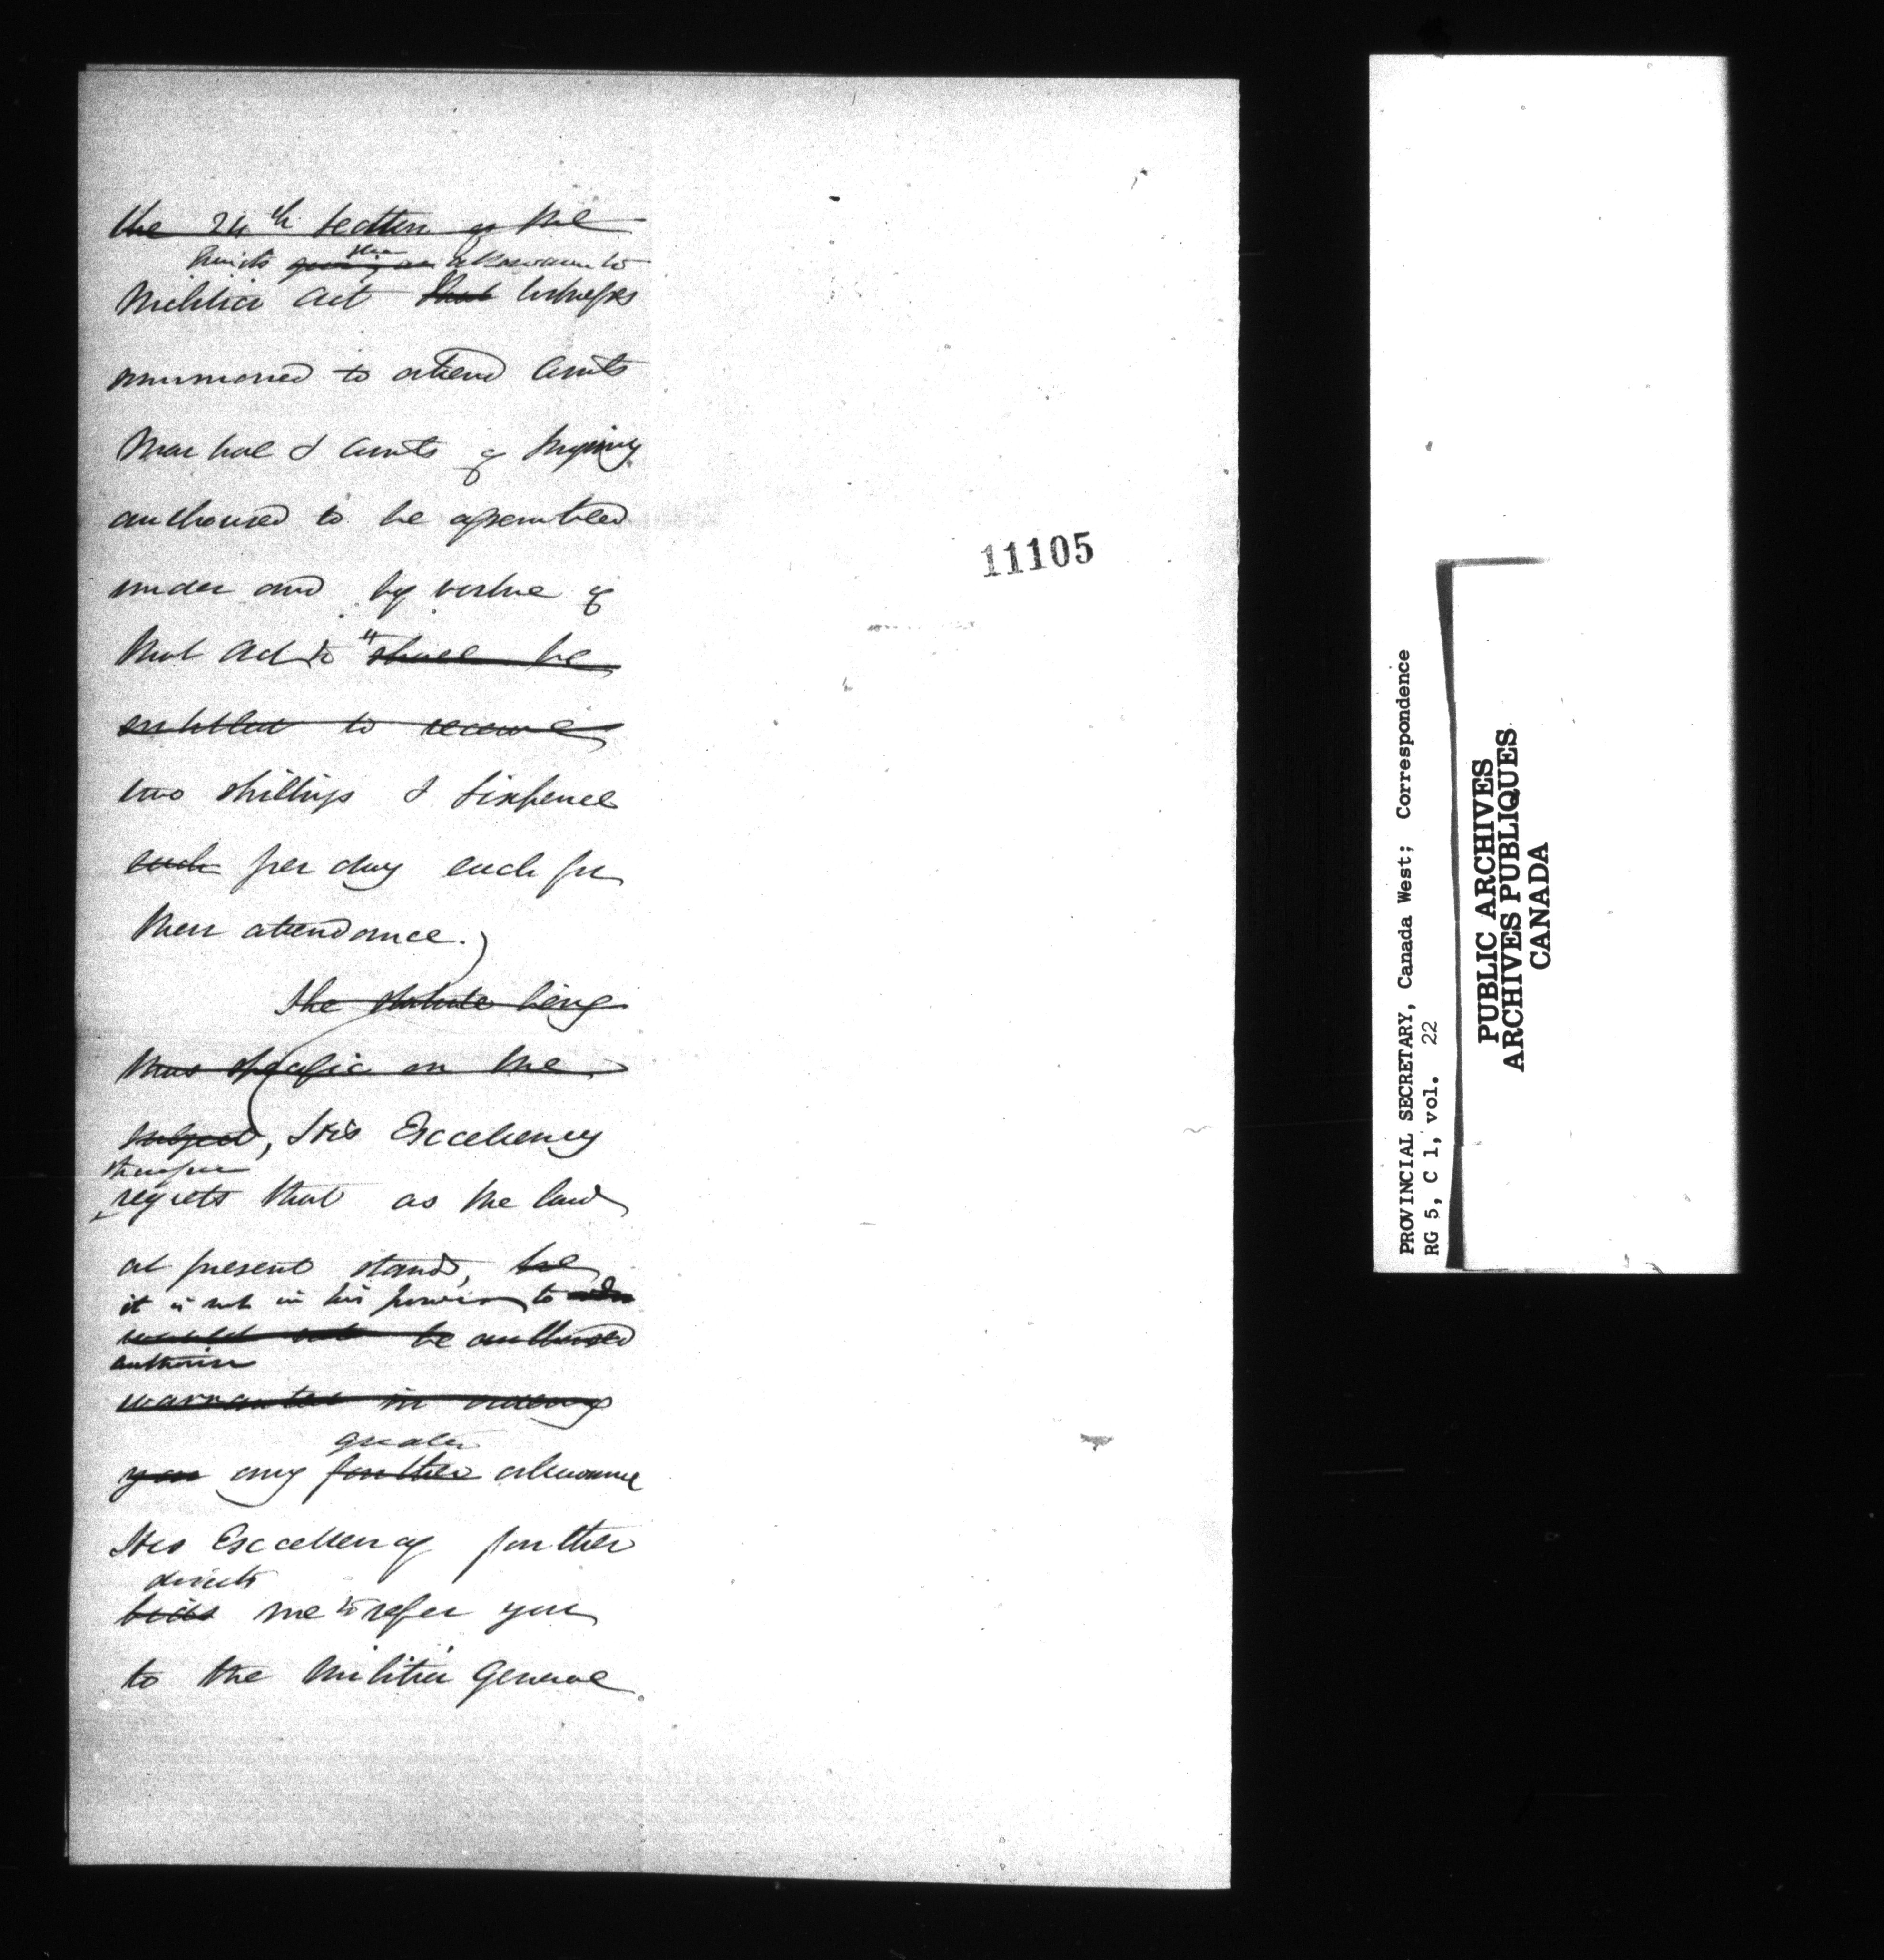 the 24th section of the
limits the allowance to
Militia Act that Witnesses
summoned to attend Courts
Martial & Courts of Inquiry
authorised to be assembled
under and by virtue of
that Act to "shall be
entitled to receive
two shillings & sixpence
each per day each for
their attendance.
The statute being
thus specific on the
subject, His Excellency
therefore
regrets that as the law
at present stands, he
it is not in his power to
would not be authorised
authorise
warranted in
greater
you any further allowance
His Excellency further
directs
me to refer you
to the Militia General
11105
PROVINCIAL SECRETARY, Canada West; Correspondence
RG 5, C 1, vol. 22
PUBLIC ARCHIVES
ARCHIVES PUBLIQUES
CANADA